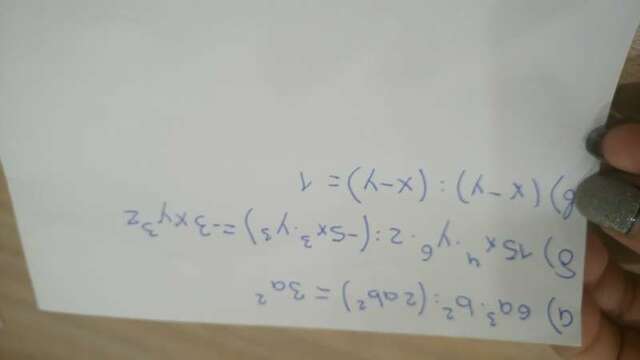 а) 6a³·b²:(2ab²) = 3a²
б) 15x⁴·y⁶·z:(-5x³·y³) = -3xy³z
в) (x-y):(x-y) = 1